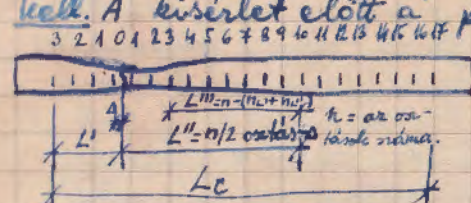 kell. A kísérlet előtt a p
3 2 1 0 1 2 3 4 5 6 7 8 9 10 11 12 13 14 15 16 17
L'''=n-(
A
L' L''=n/2 osztás n = az osz-
tások száma.